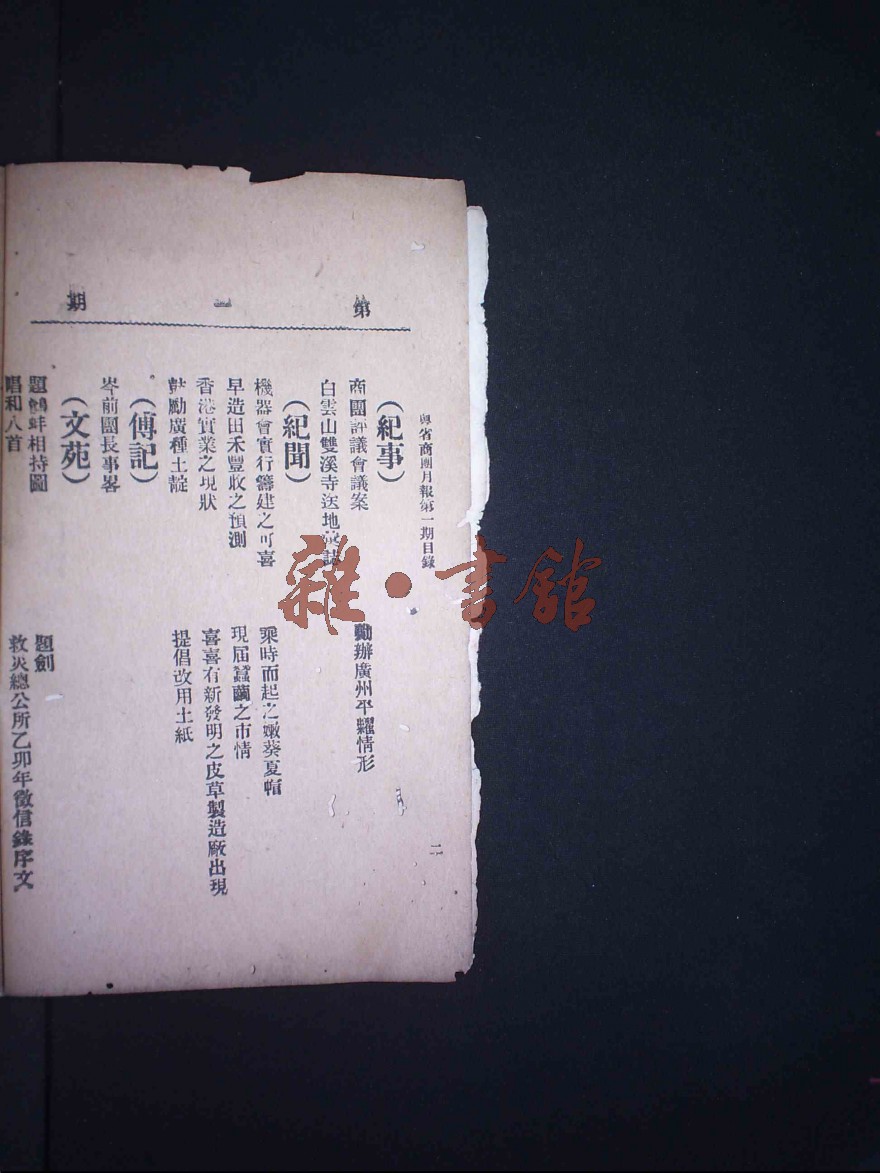 第一期
粵省商團月報第一期目錄
二
（紀事）
商團評議會議案
勷辦廣州平糶情形
白雲山雙溪寺送地彙誌
（紀聞）
機器會實行籌建之可喜
乘時而起之嫩葵夏帽
早造田禾豐收之預測
現届蠶繭之市情
香港實業之現狀
喜喜有新發明之皮草製造廠出現
鼓勵廣種土靛
提倡改用土紙
（傅記）
岑前團長事畧
（文苑）
題鷸蚌相持圖
題劍
唱和八首
救災總公所乙卯年徵信錄序文
雜·書館